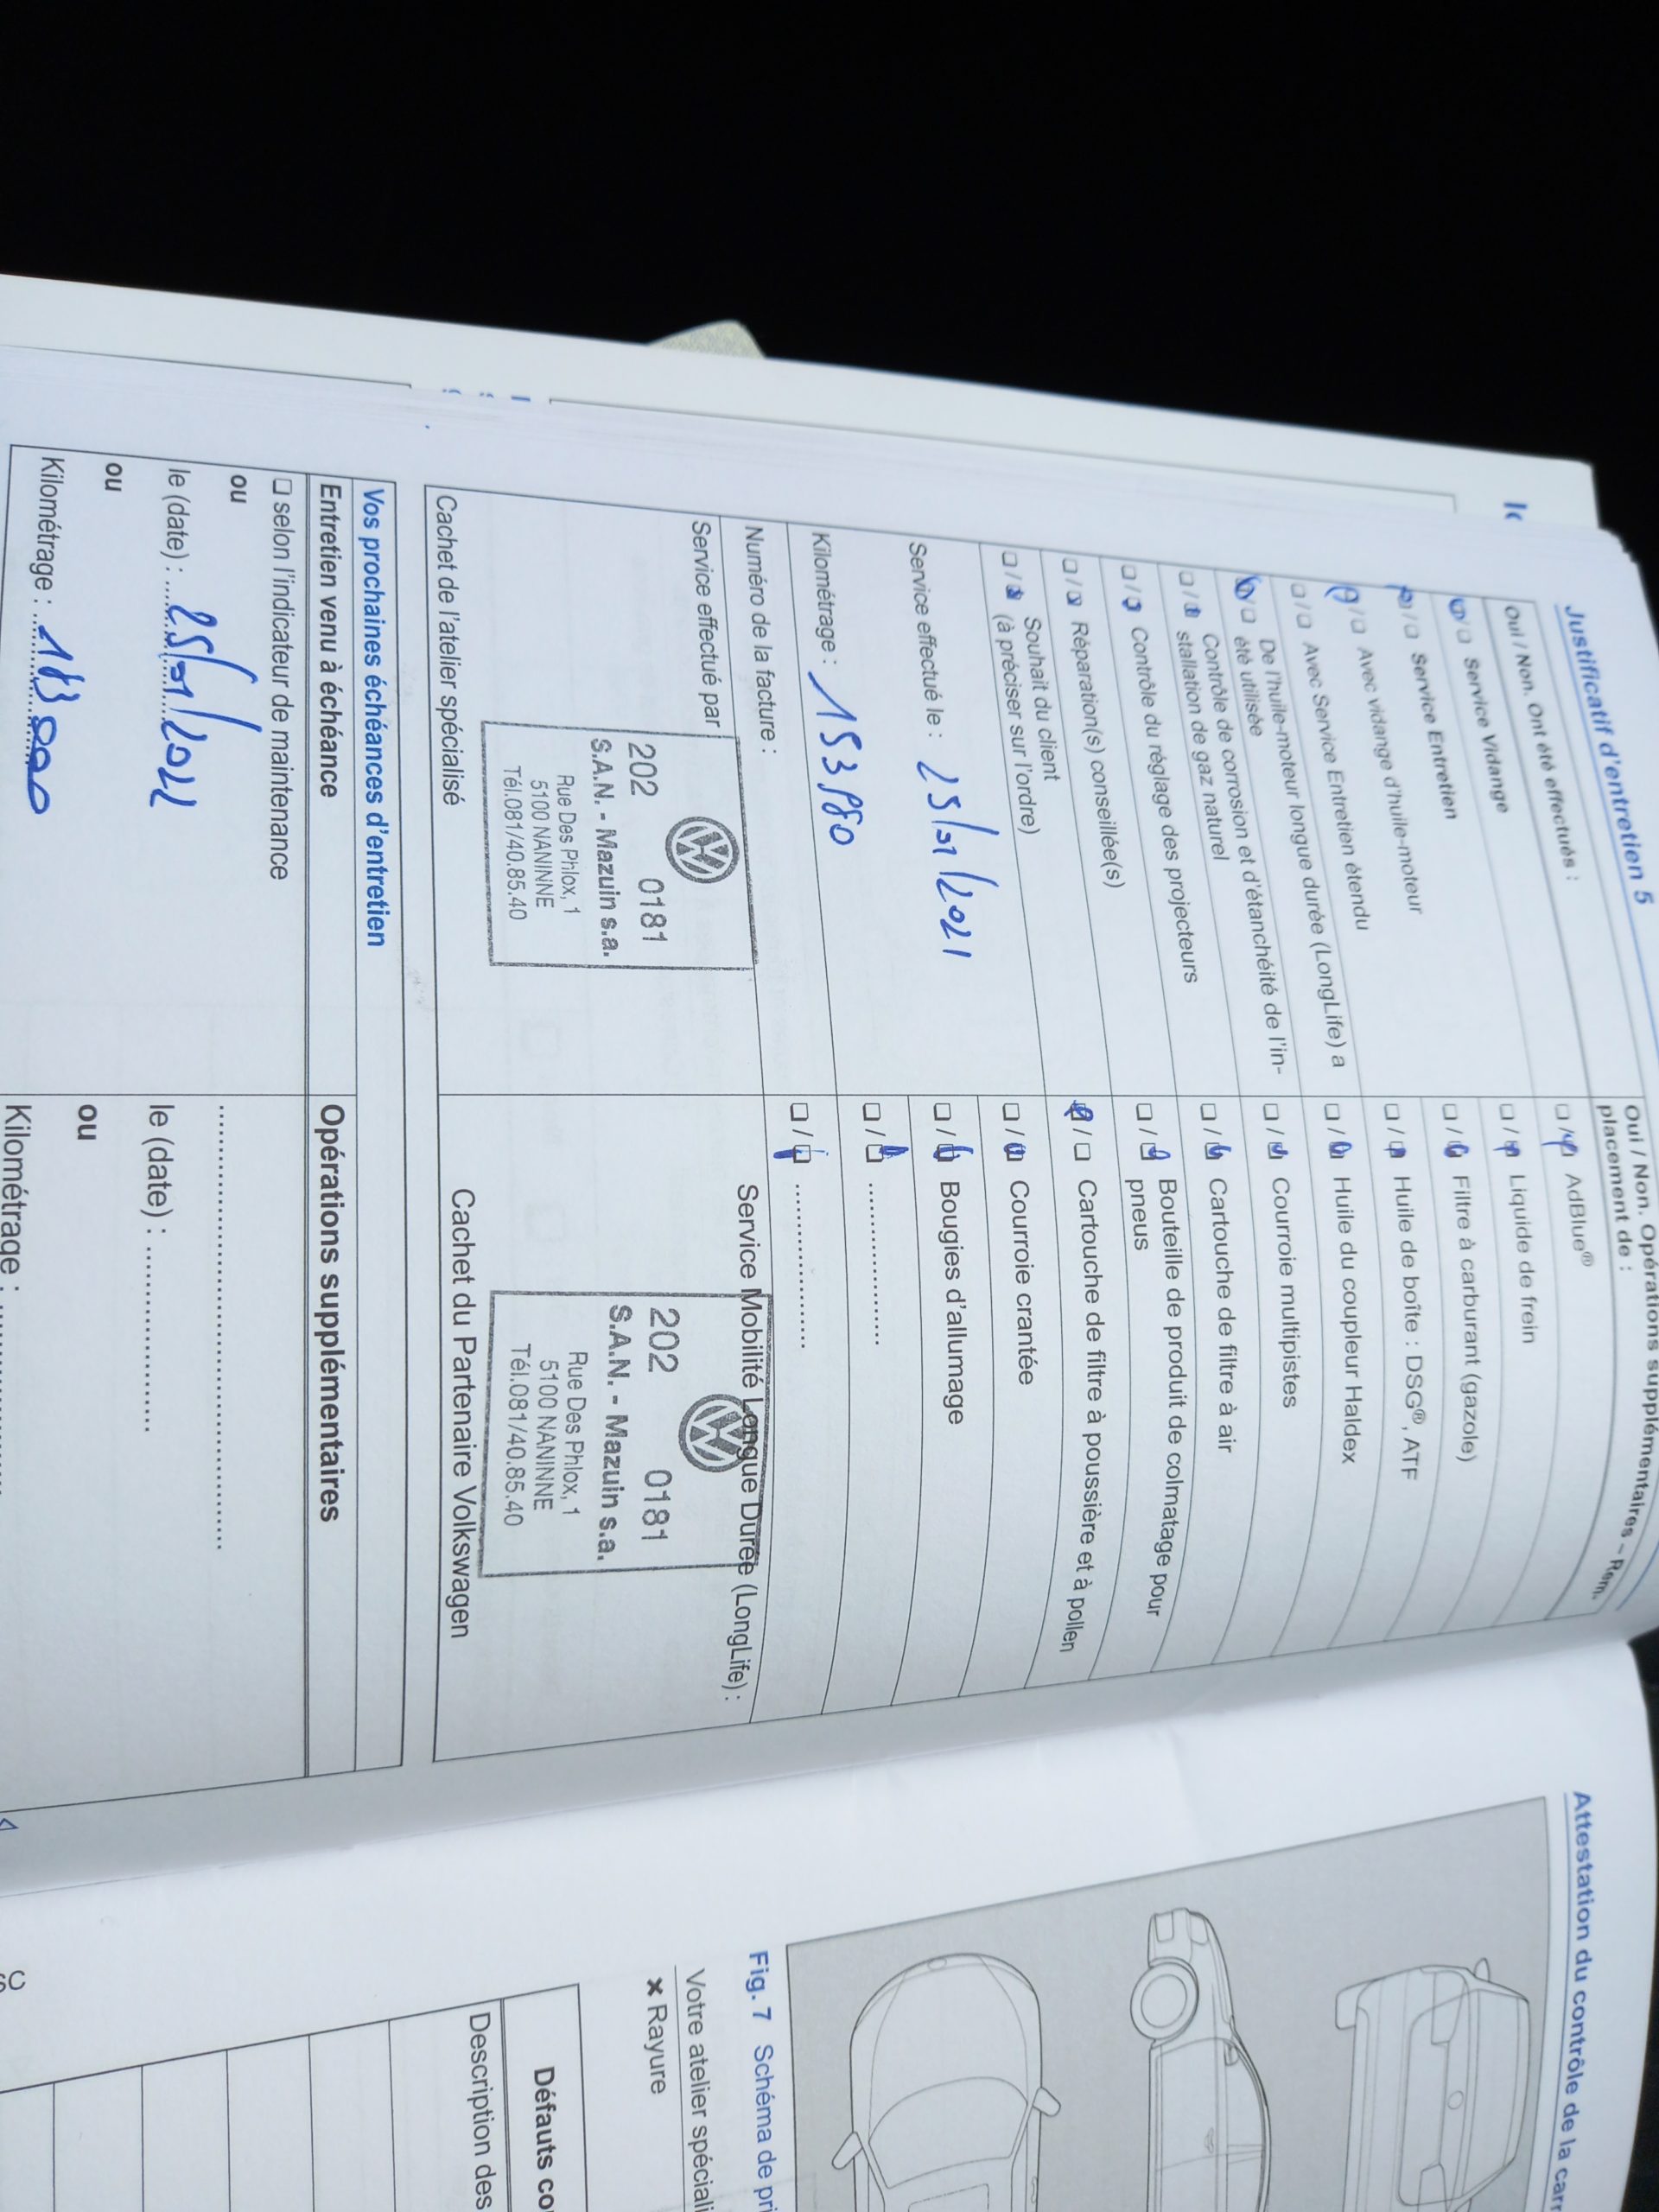 Justificatif d'entretien 5
Oui / Non. Ont été effectués :
Service Vidange
Service Entretien
Avec vidange d'huile-moteur
Avec Service Entretien étendu
De l'huile-moteur longue durée (LongLife) a
été utilisée
Contrôle de corrosion et d'étanchéité de l'in-
stallation de gaz naturel
Contrôle du réglage des projecteurs
Réparation(s) conseillée(s)
Souhait du client
(à préciser sur l'ordre)
Service effectué le : 25/01/2021
Kilométrage : 153.980
Numéro de la facture :
Service effectué par
202 0181
S.A.N. - Mazuin s.a.
Rue Des Phlox, 1
5100 NANINNE
Tél.081/40.85.40
Cachet de l'atelier spécialisé
Oui / Non. Opérations supplémentaires – Rem.
placement de :
AdBlue®
Liquide de frein
Filtre à carburant (gazole)
Huile de boîte : DSG®, ATF
Huile du coupleur Haldex
Courroie multipistes
Cartouche de filtre à air
Bouteille de produit de colmatage pour
pneus
Cartouche de filtre à poussière et à pollen
Courroie crantée
Bougies d'allumage
Service Mobilité Longue Durée (LongLife) :
202 0181
S.A.N. - Mazuin s.a.
Rue Des Phlox, 1
5100 NANINNE
Tél.081/40.85.40
Cachet du Partenaire Volkswagen
Vos prochaines échéances d'entretien
Entretien venu à échéance
selon l'indicateur de maintenance
ou
le (date) : 25/01/2022
ou
Kilométrage : 183000
Opérations supplémentaires
le (date) :
ou
Kilométrage :
Attestation du contrôle de la carr
Fig. 7 Schéma de pri
Votre atelier spéciali
× Rayure
Défauts co
Description des